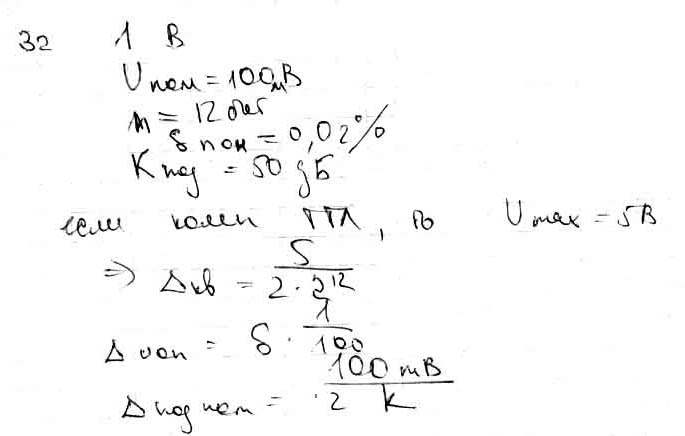 32 1 В
Uпом = 100мВ
m = 12 бит
δ пон = 0,02%
Kпод = 50 дБ
если комп ТТЛ, то Umax = 5В
⇒ Δкв = 5 / 2·2¹²
Δ uon = δ · 1 / 100
Δ под пом = 100 mВ / ·2 K